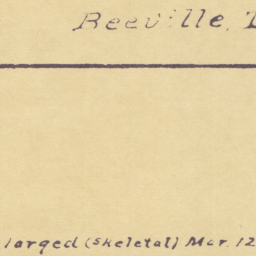 Beeville,
larged (skeletal) Mar. 12